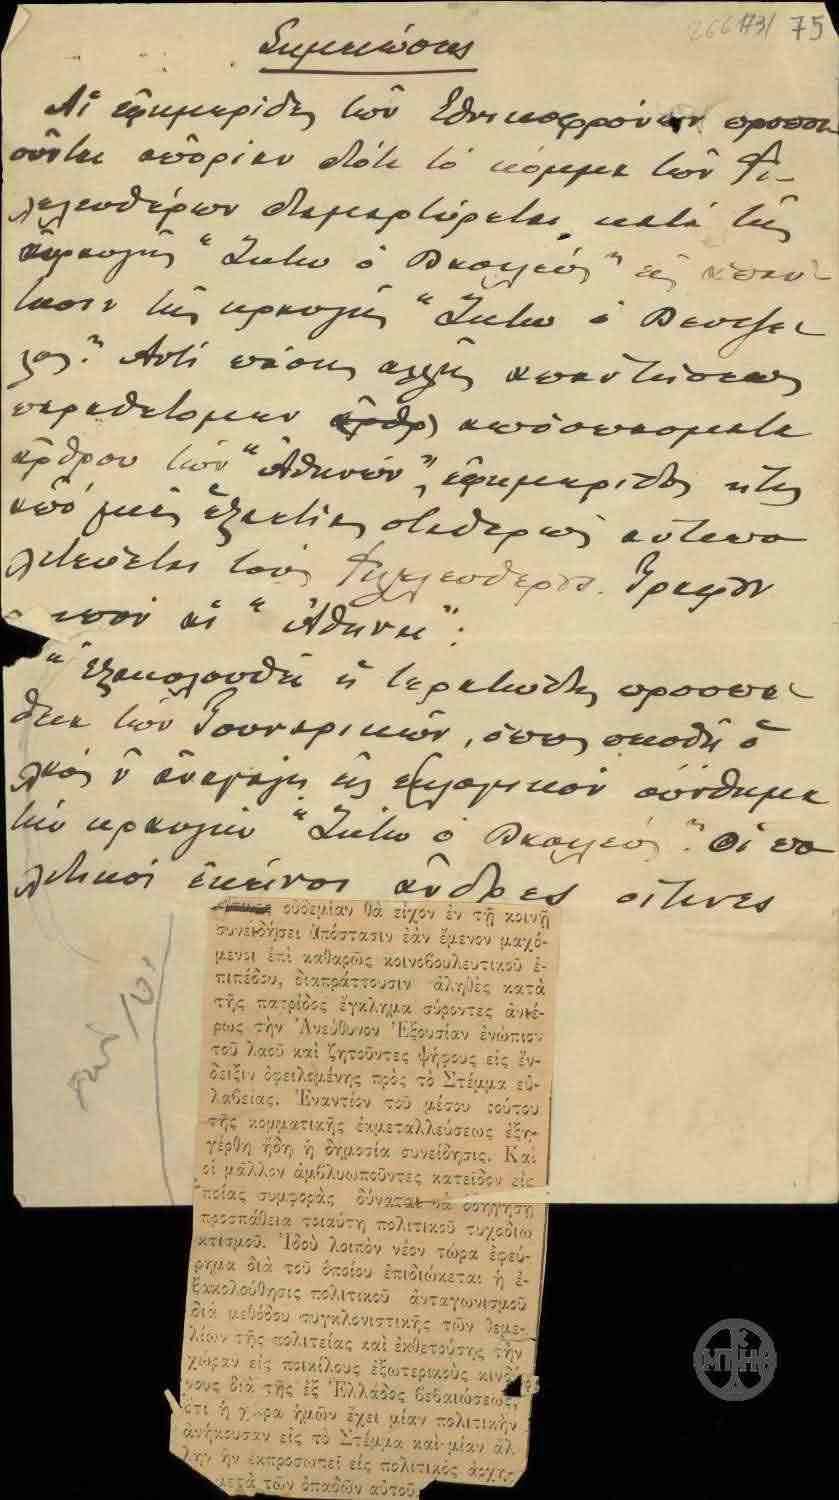 266173/ 75
Σημειώσεις
Αἱ ἐφημερίδες τῶν Ἐθνικοφρόνων προσποι
οῦνται ἀπορίαν διότι τὸ κόμμα τῶν Φι-
λελευθέρων διαμαρτύρεται κατὰ τῆς
κραυγῆς "Ζήτω ὁ Βασιλεύς" εἰς ἀπάν
τησιν τῆς κραυγῆς "Ζήτω ὁ Βενιζέ
λος". Ἀντὶ πάσης ἄλλης ἀπαντήσεως
παραθέτομεν ἀποσπάσματα
ἄρθρου τῶν "Ἀθηνῶν", ἐφημερίδος ἥτις
ἀπὸ μιᾶς ἑξαετίας σταθερῶς ἀντιπο
λιτεύεται τοὺς Φιλελευθέρους. Γράφου
αἱ "Ἀθῆναι":
"Ἐξακολουθεῖ ἡ τερατώδης προσπά
θεια τῶν Γουναρικῶν, ὅπως πεισθῇ ὁ
λαὸς ν' ἀναγάγῃ εἰς ἐκλογικὸν σύνθημα
τὴν κραυγὴν "Ζήτω ὁ Βασιλεύς". Οἱ πο
λιτικοὶ ἐκεῖνοι ἄνδρες οἵτινες
οὐδεμίαν θὰ εἶχον ἐν τῇ κοινῇ
συνειδήσει ὑπόστασιν ἐὰν ἔμενον μαχό-
μενοι ἐπὶ καθαρῶς κοινοβουλευτικοῦ ἐ-
πιπέδου, διαπράττουσιν ἀληθὲς κατὰ
τῆς πατρίδος ἔγκλημα σύροντες ἀνιέ-
ρως τὴν Ἀνεύθυνον Ἐξουσίαν ἐνώπιον
τοῦ λαοῦ καὶ ζητοῦντες ψήφους εἰς ἔν-
δειξιν ὀφειλομένης πρὸς τὸ Στέμμα εὐ-
λαβείας. Ἐναντίον τοῦ μέσου τούτου
τῆς κομματικῆς ἐκμεταλλεύσεως ἐξη-
γέρθη ἤδη ἡ δημοσία συνείδησις. Καὶ
οἱ μᾶλλον ἀμβλυωποῦντες κατεῖδον εἰς
ποίας συμφορὰς δύναται νὰ ὁδηγήσῃ
προσπάθεια τοιαύτη πολιτικοῦ τυχοδιω
κτισμοῦ. Ἰδοὺ λοιπὸν νέον τώρα ἐφεύ-
ρημα διὰ τοῦ ὁποίου ἐπιδιώκεται ἡ ἐ-
ξακολούθησις πολιτικοῦ ἀνταγωνισμοῦ
διὰ μεθόδου συγκλονιστικῆς τῶν θεμε-
λίων τῆς πολιτείας καὶ ἐκθετούσης τὴν
χώραν εἰς ποικίλους ἐξωτερικοὺς κινδύ
νους διὰ τῆς ἐξ Ἑλλάδος βεβαιώσεως,
ὅτι ἡ χώρα ἡμῶν ἔχει μίαν πολιτικὴν
ἀνήκουσαν εἰς τὸ Στέμμα καὶ μίαν ἄλ-
λην ἣν ἐκπροσωπεῖ εἷς πολιτικὸς ἀρχηγ
μετὰ τῶν ὀπαδῶν αὐτοῦ
ΜΠΗ